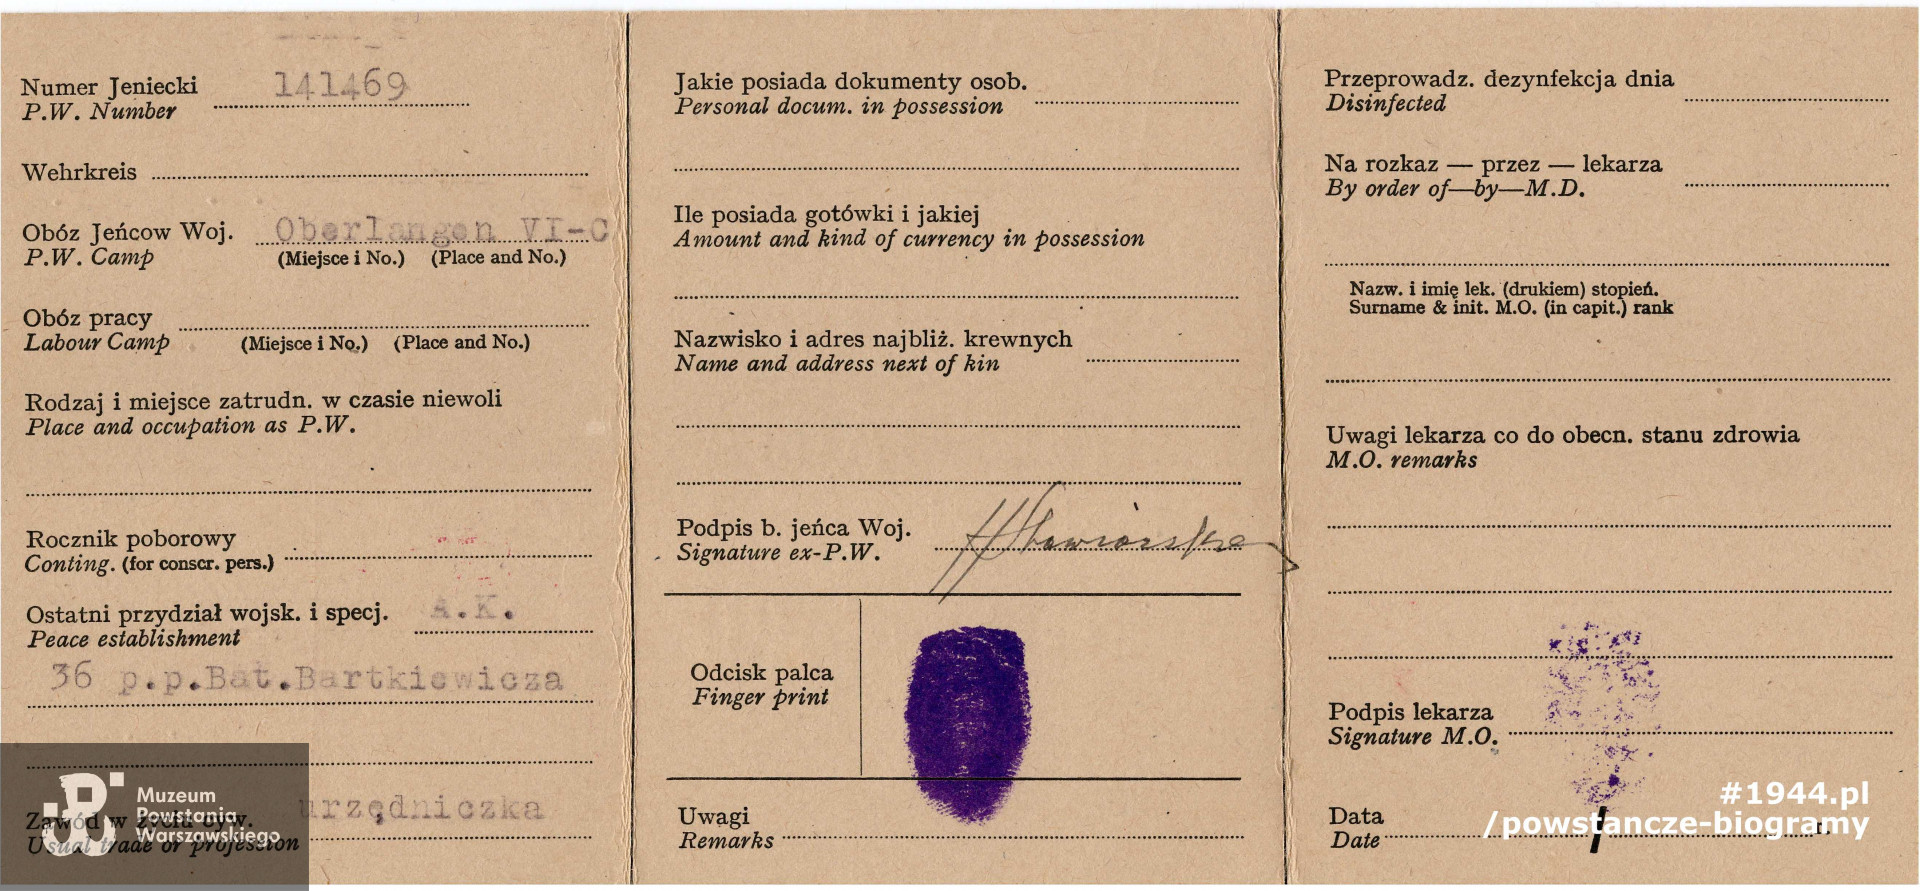 Numer Jeniecki 141469
P.W. Number
Wehrkreis
Obóz Jeńcow Woj. Oberlangen VI-C
P.W. Camp (Miejsce i No.) (Place and No.)
Obóz pracy
Labour Camp (Miejsce i No.) (Place and No.)
Rodzaj i miejsce zatrudn. w czasie niewoli
Place and occupation as P.W.
Rocznik poborowy
Conting. (for conscr. pers.)
Ostatni przydział wojsk. i specj. A.K.
Peace establishment
36 p.p.Bat.Bartkiewicza
Zawód w życiu cyw. urzędniczka
Usual trade or profession
Muzeum
Powstania
Warszawskiego
Jakie posiada dokumenty osob.
Personal docum. in possession
Ile posiada gotówki i jakiej
Amount and kind of currency in possession
Nazwisko i adres najbliż. krewnych
Name and address next of kin
Podpis b. jeńca Woj.
Signature ex-P.W.
Odcisk palca
Finger print
Uwagi
Remarks
Przeprowadz. dezynfekcja dnia
Disinfected
Na rozkaz — przez — lekarza
By order of—by—M.D.
Nazw. i imię lek. (drukiem) stopień.
Surname & init. M.O. (in capit.) rank
Uwagi lekarza co do obecn. stanu zdrowia
M.O. remarks
Podpis lekarza
Signature M.O.
Data
Date
#1944.pl
/powstancze-biogramy